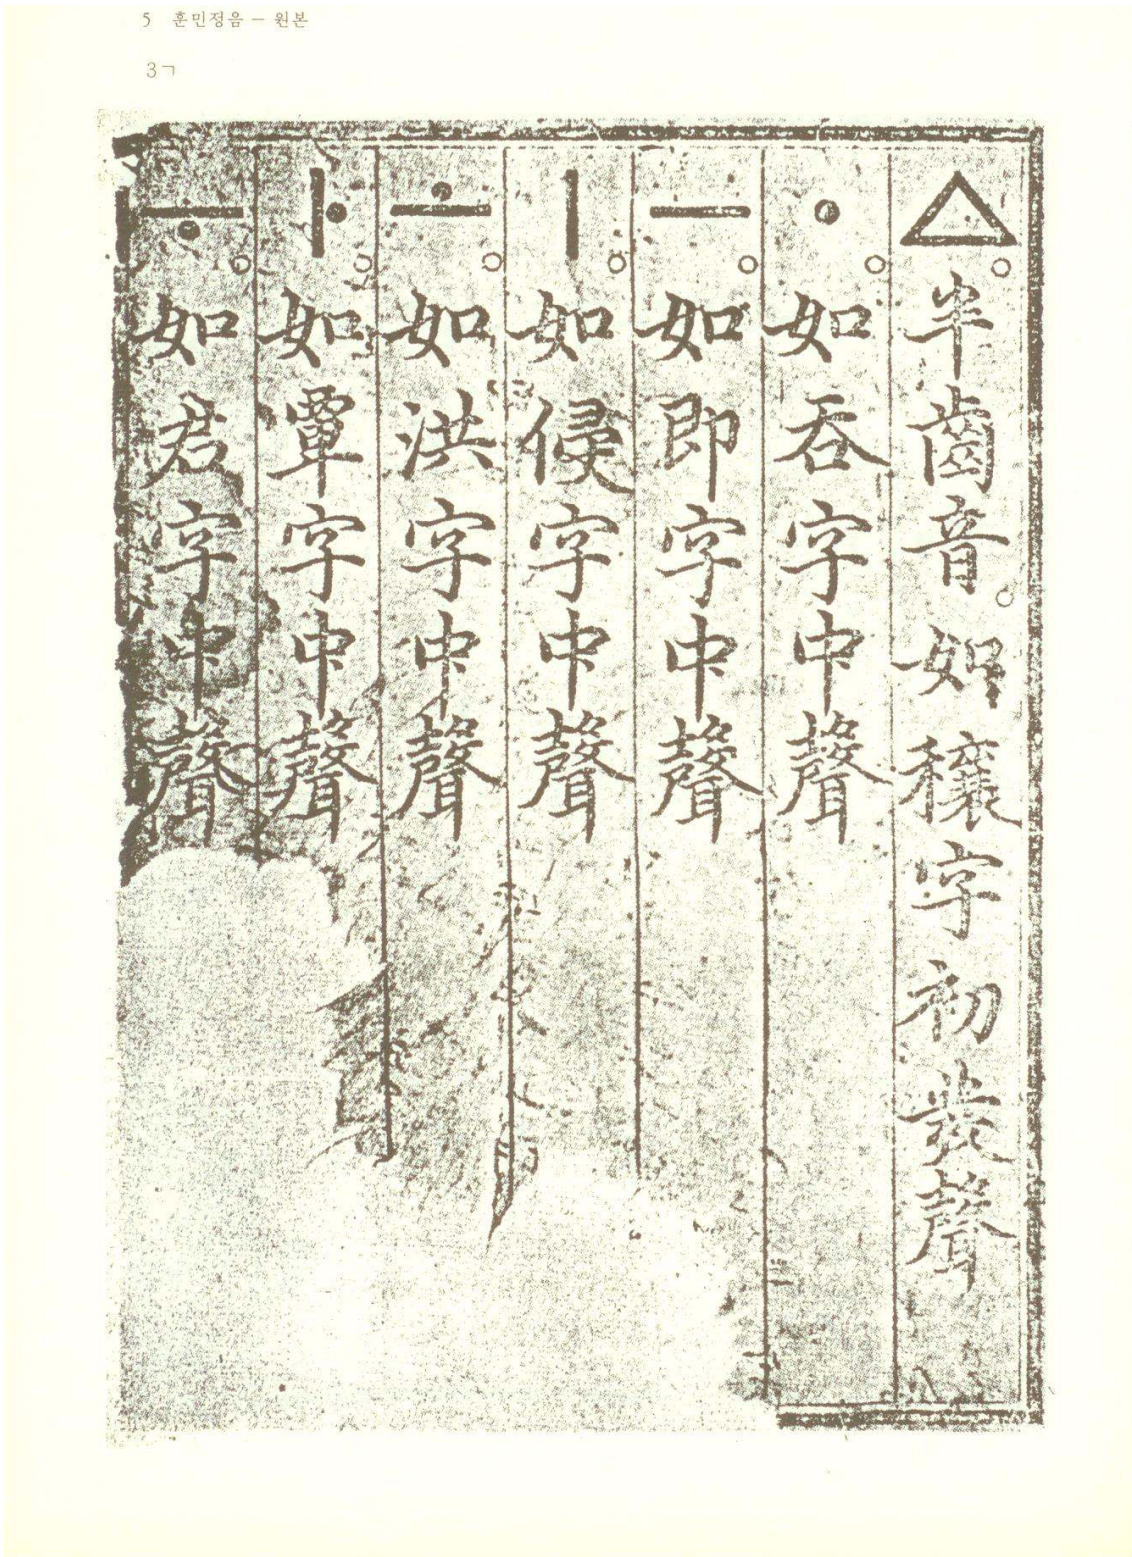 5 훈민정음 － 원본
3ㄱ
ㅿ。半齒音。如穰字初發聲
ㆍ。如呑字中聲
ㅡ。如即字中聲
ㅣ。如侵字中聲
ㅗ。如洪字中聲
ㅏ。如覃字中聲
ㅜ。如君字中聲